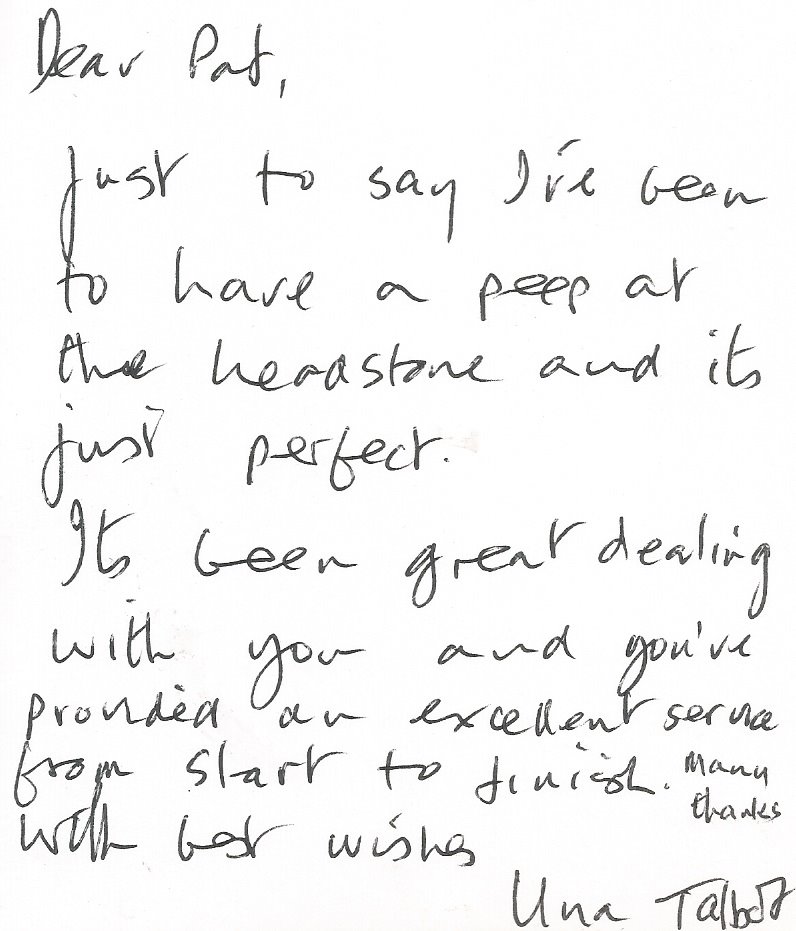 Dear Pat,
just to say I've been
to have a peep at
the headstone and its
just perfect.
Its been great dealing
with you and you've
provided an excellent service
from start to finish. Many
thanks
With best wishes
Una Talbot